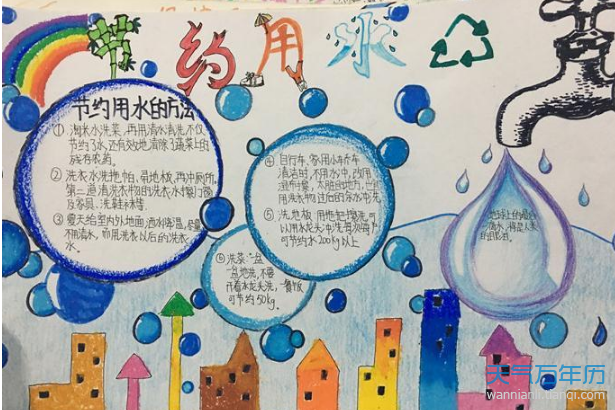 节约用水
节约用水的方法
① 淘米水洗菜,再用清水清洗,不仅
节约了水,还有效地清除了蔬菜上的
残存农药。
② 洗衣水洗地帕、晃地板,再冲厕所,
第二道清洗衣物的洗衣水擦门窗
及家具、洗鞋袜等。
③ 夏天给室内外地面洒水降温,尽量
不用清水,而用洗衣以后的洗衣
水。
④ 自行车、家用小轿车
清洁时,不用水冲,改用
湿布擦,太脏的地方,也
用洗衣物过后的余水冲洗
⑤ 洗地板:用地把擦洗,可
以用水龙头冲洗每次每
可节约水200kg以上
⑥ 洗菜:一盆
一盆地洗,不要
开着水龙头洗,一餐饭
可节约50kg。
地球上的最后
一滴水,将是人类
的眼泪。
天气万年历
wannianli.tianqi.com